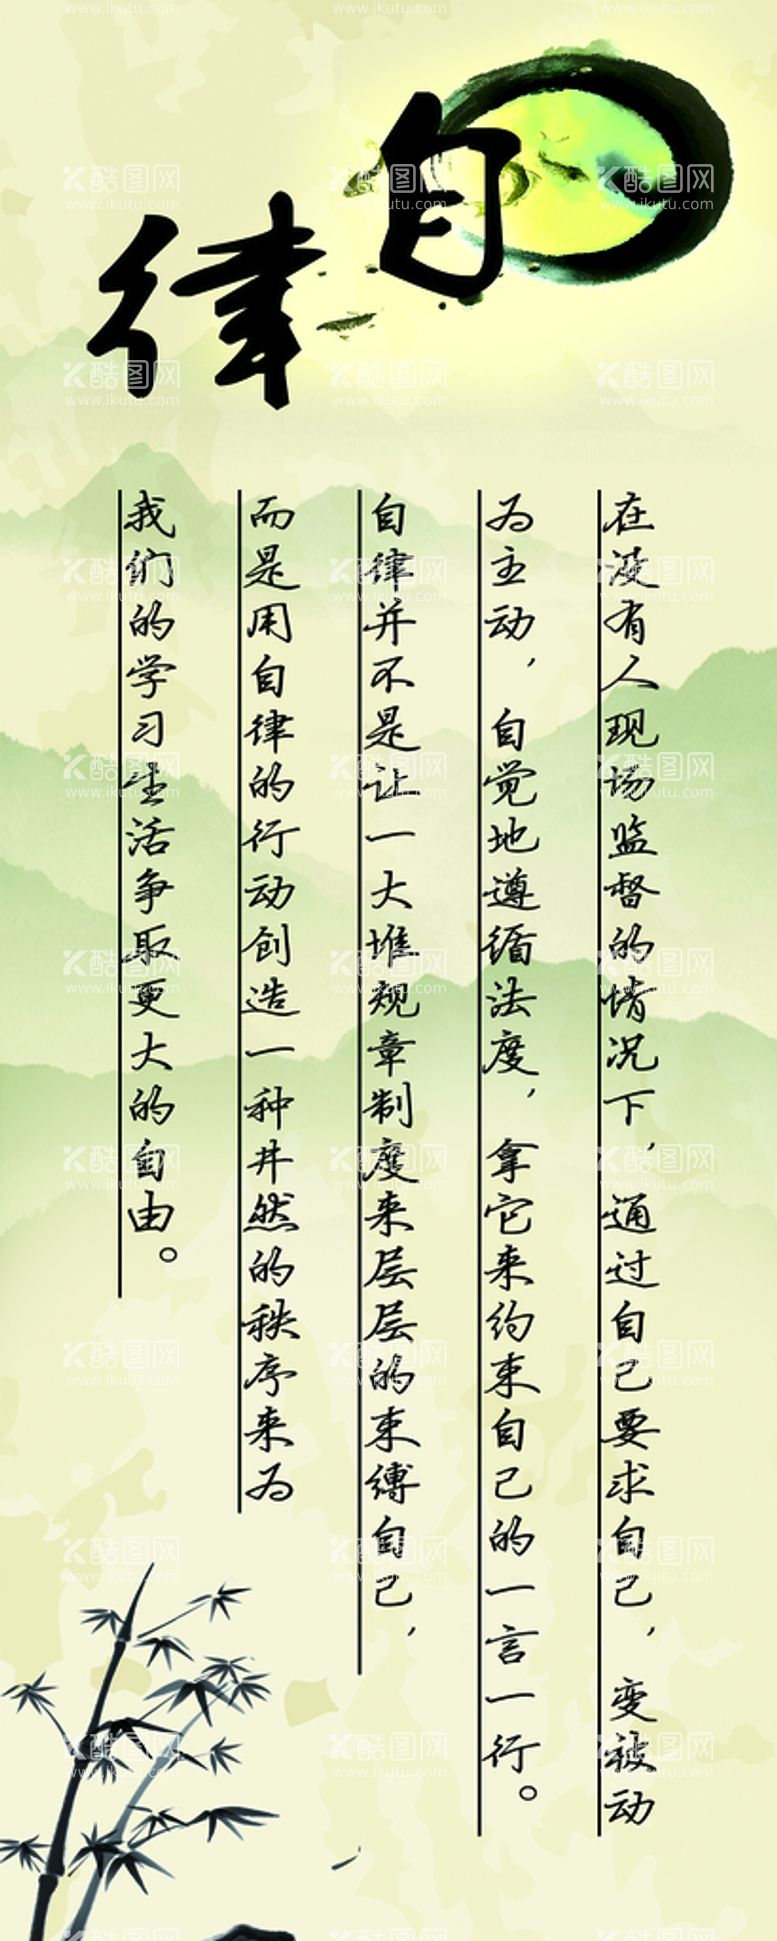 自律
在没有人现场监督的情况下，通过自己要求自己，变被动
为主动，自觉地遵循法度，拿它来约束自己的一言一行。
自律并不是让一大堆规章制度来层层的束缚自己，
而是用自律的行动创造一种井然的秩序来为
我们的学习生活争取更大的自由。
酷图网
www.ikutu.com